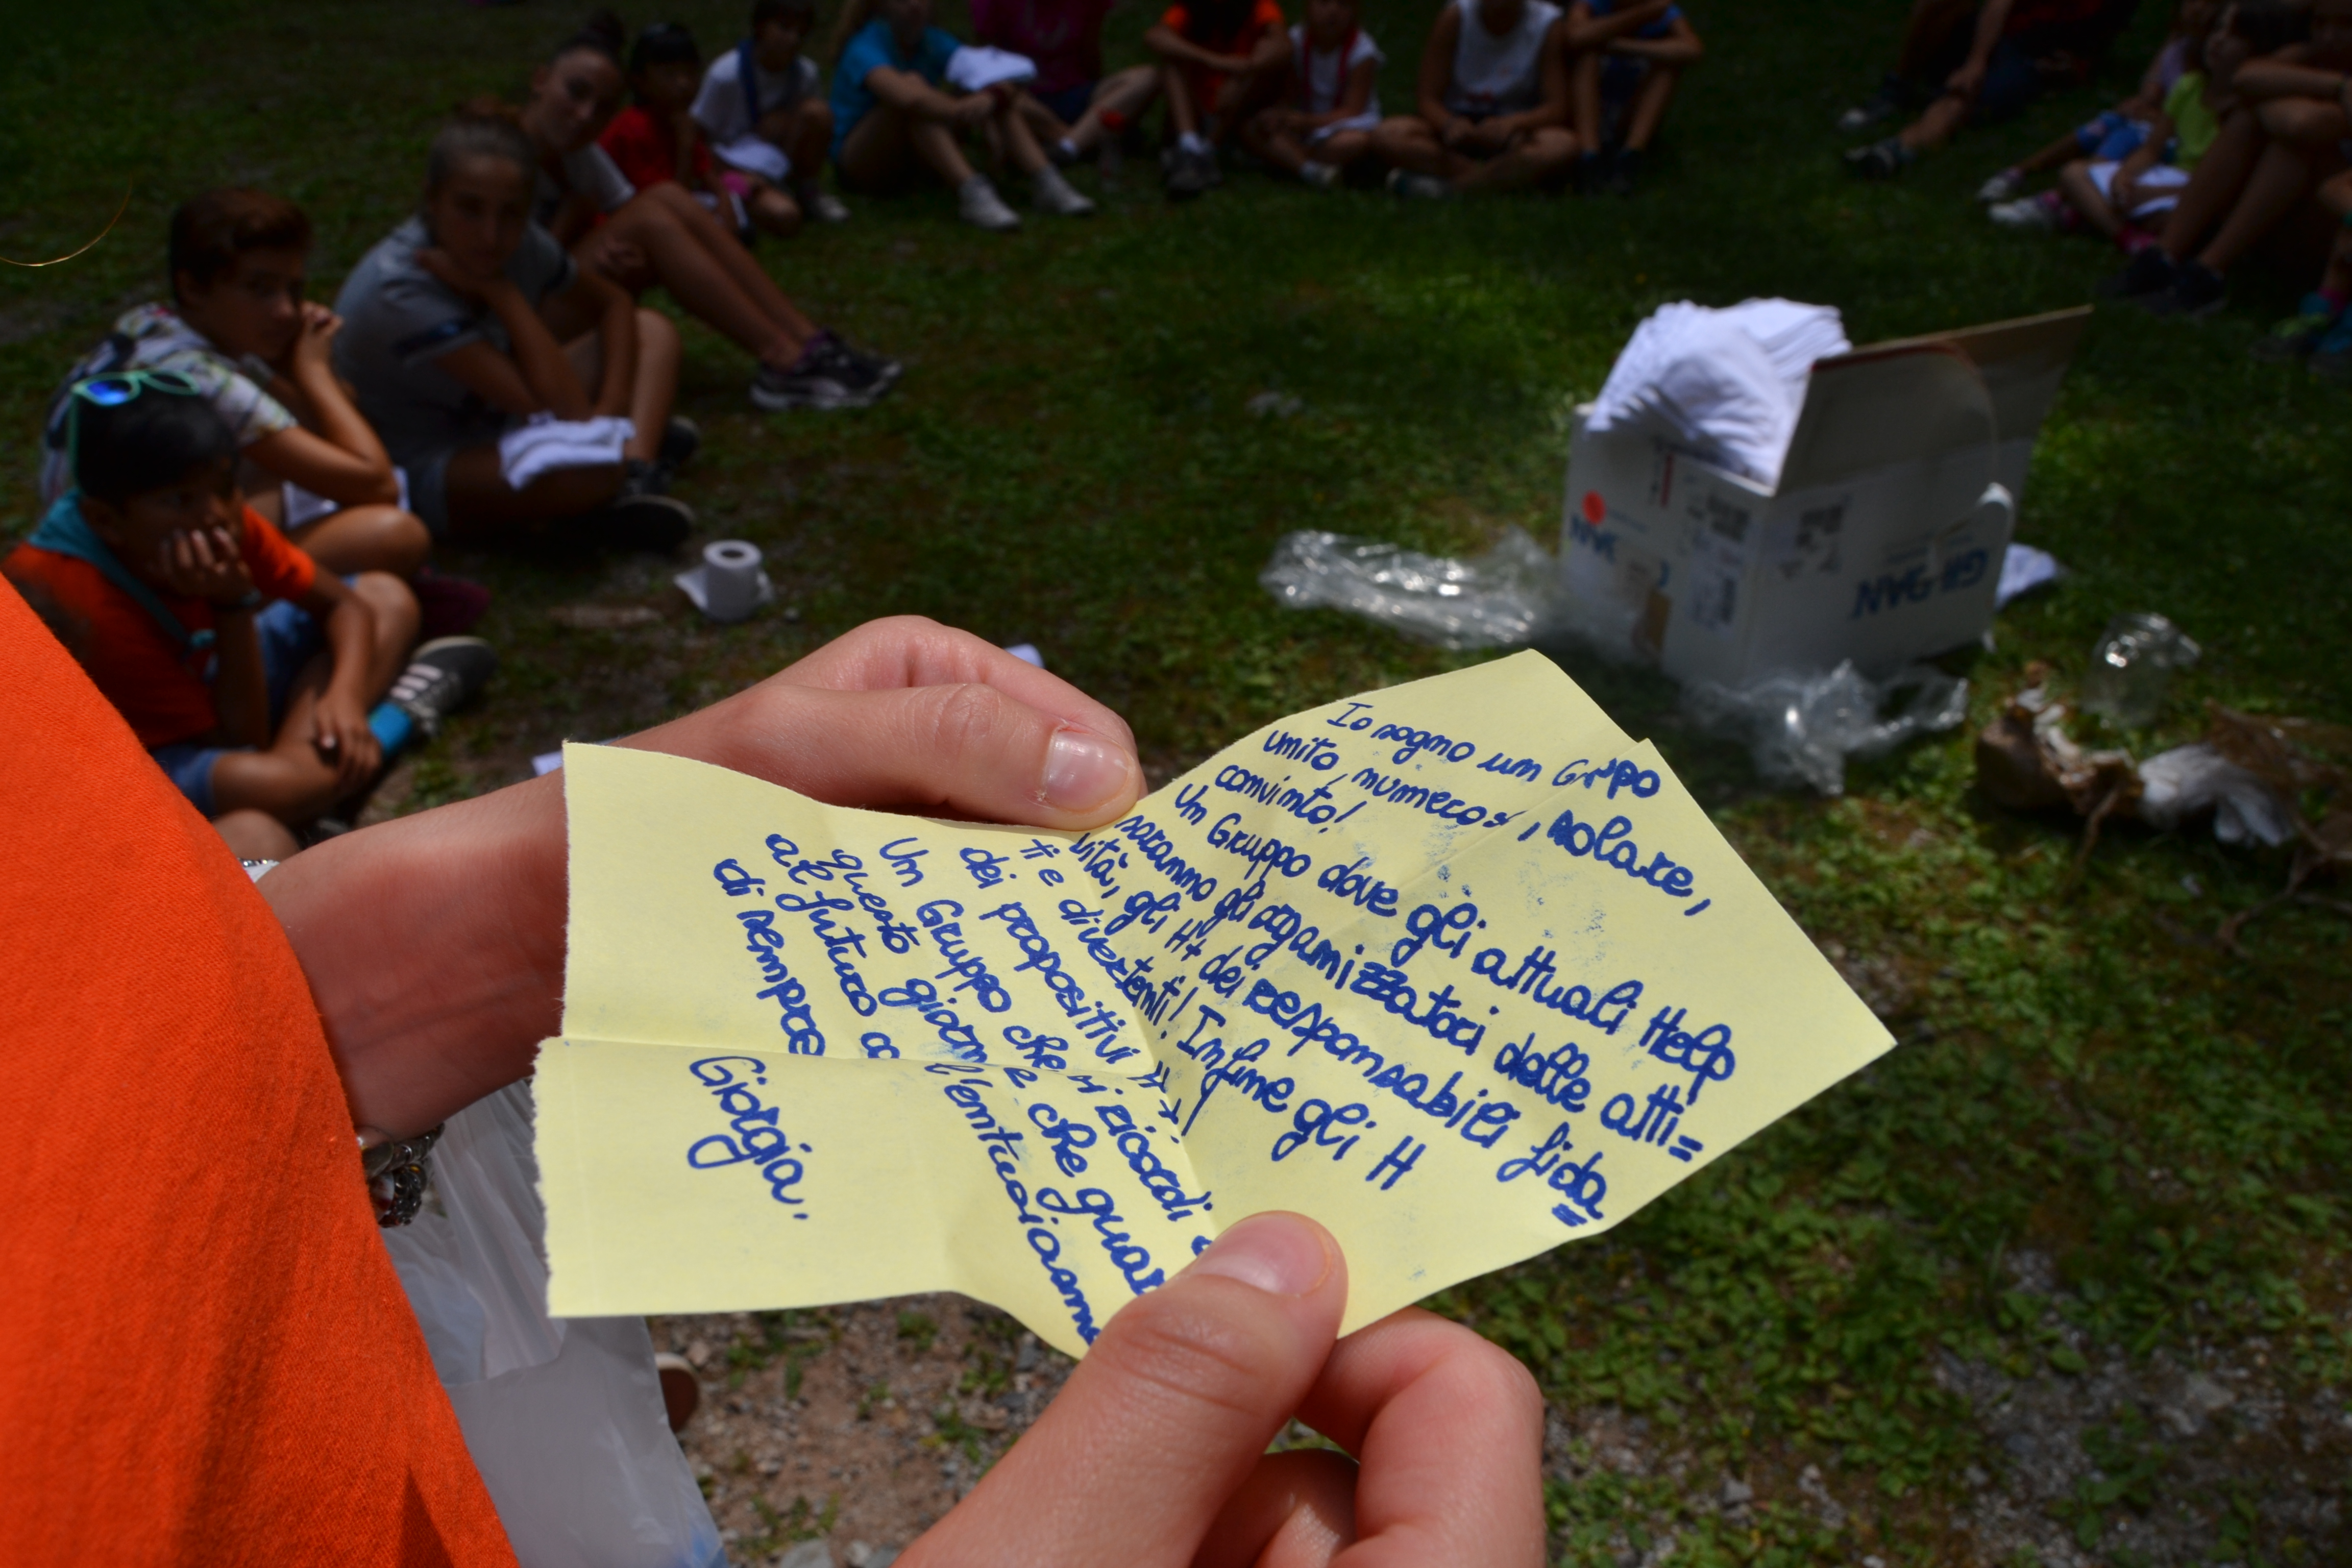 Io sogno un Gruppo
unito, numeroso, solare,
convinto!
Un Gruppo dove gli attuali Help
saranno gli organizzatori delle atti=
vità, gli H+ dei responsabili fida
=
ti e divertenti! Infine gli H
dei propositivi H+!
Un Gruppo che si ricordi
questo giorno e che guar
al futuro co l'entusiasmo
di sempre
Giorgia.
GILDAN